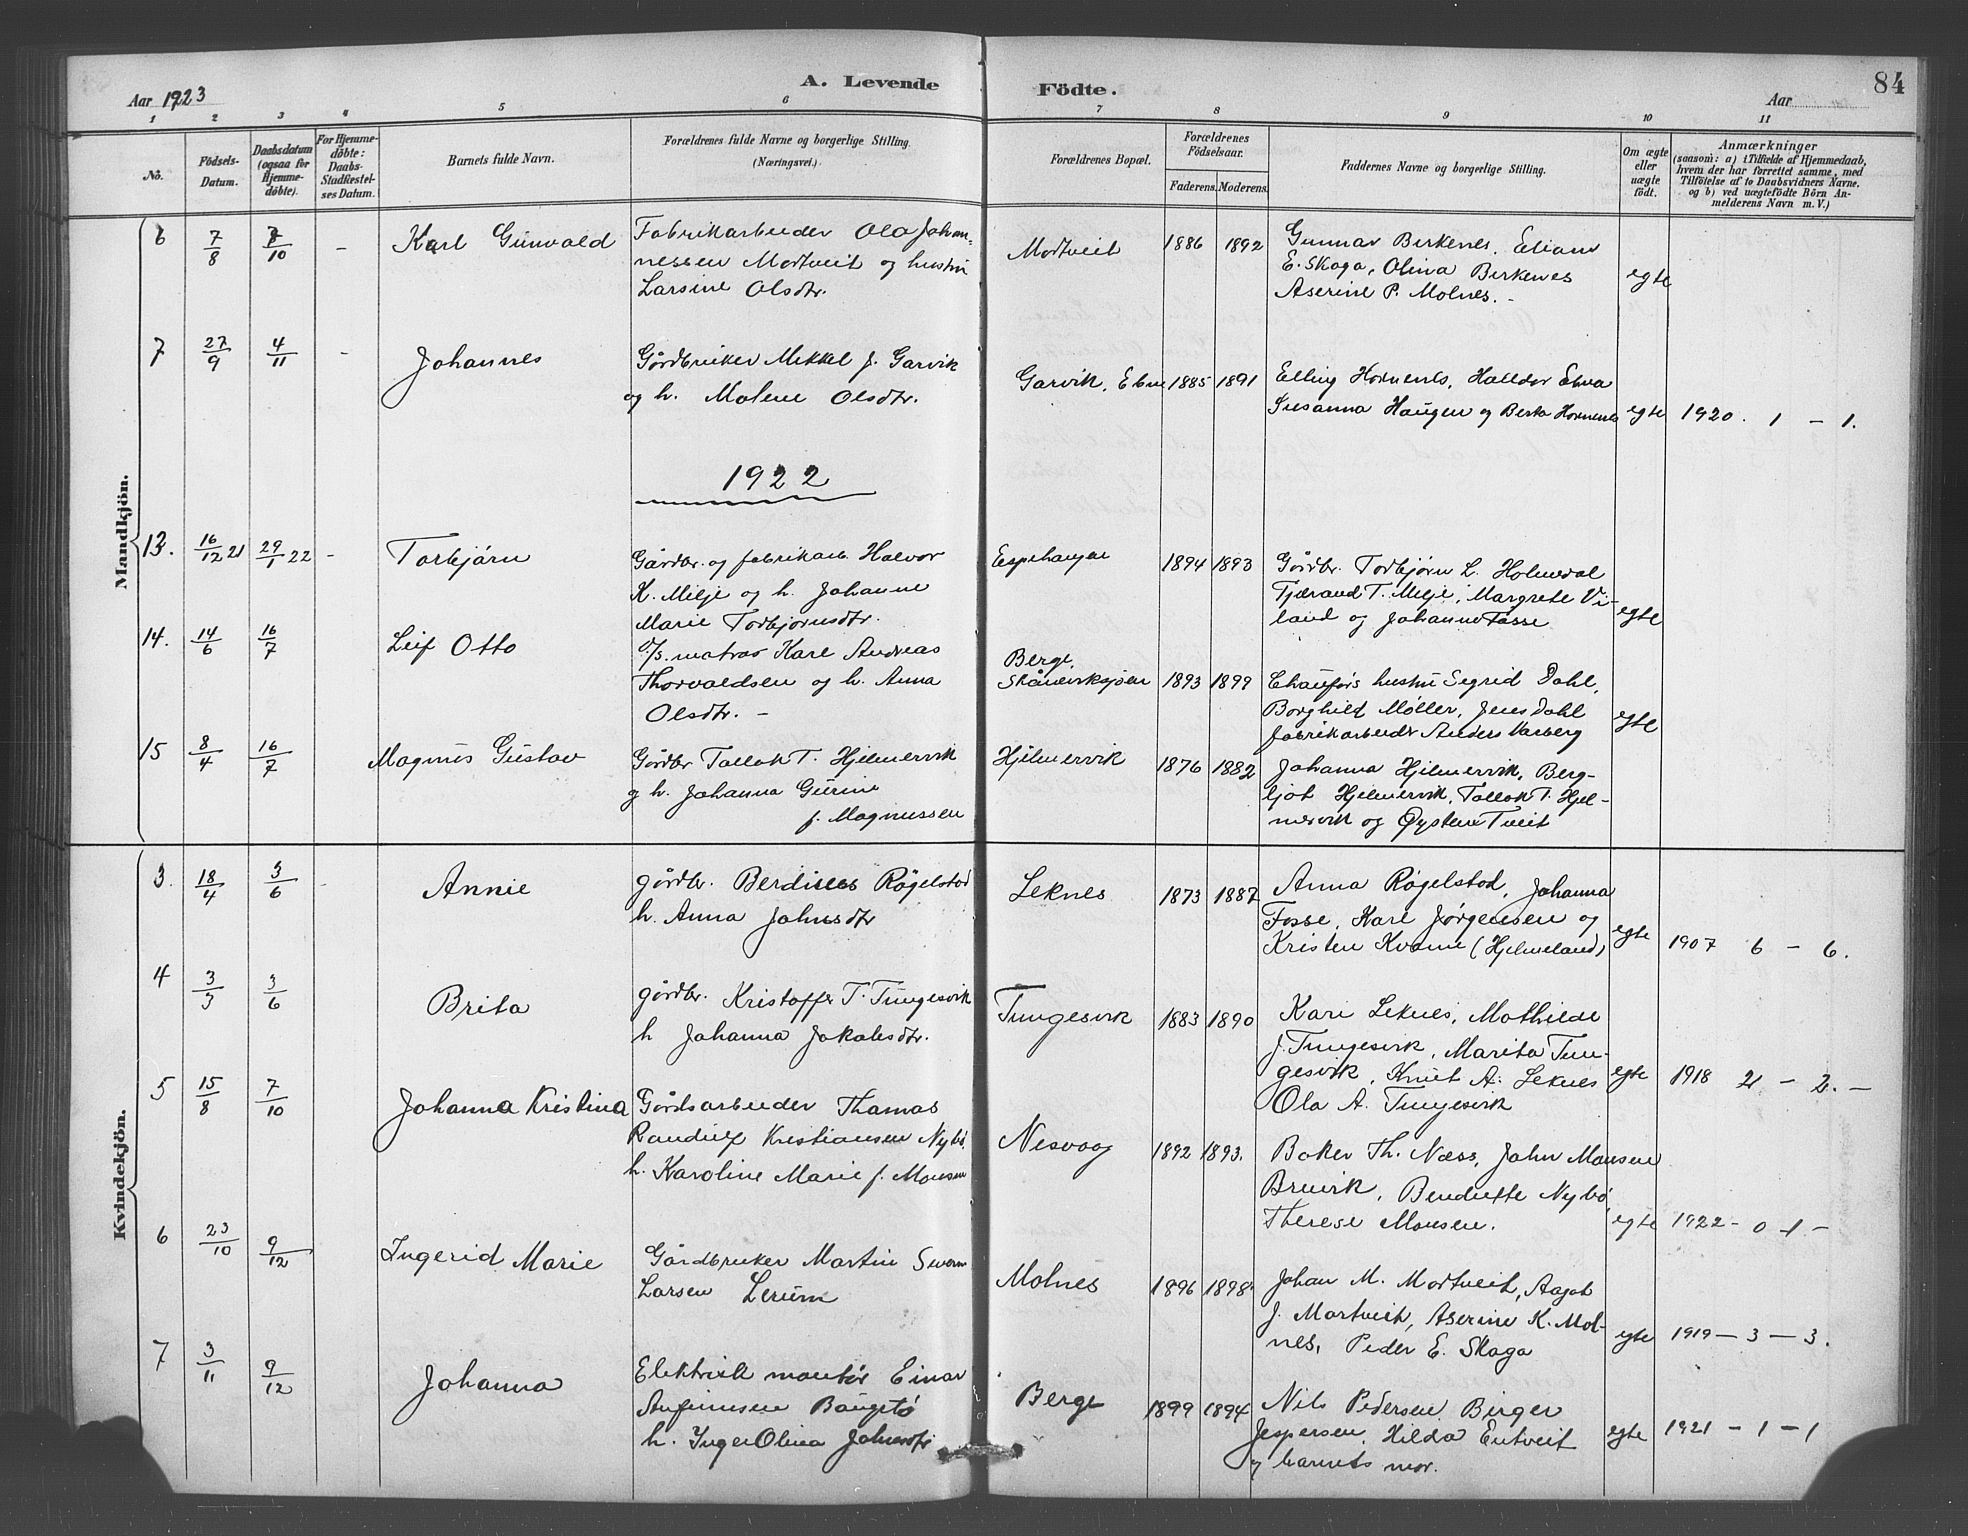 Aar 1923
A. Levende
Födte.
Aar
84
1 2 3 4 5 6 7 8 9 10 11
No.
Födsels-
Datum.
Daabsdatum
(ogsaa for
Hjemme-
döbte).
For Hjemme-
döbte:
Daabs-
Stadfæstel-
ses Datum.
Barnets fulde Navn.
Forældrenes fulde Navne og borgerlige Stilling.
(Næringsvei.)
Forældrenes Bopæl.
Forældrenes
Födselsaar.
Faderens. Moderens.
Faddernes Navne og borgerlige Stilling.
Om ægte
eller
uægte
födt.
Anmærkninger
(saasom: a) i Tilfælde af Hjemmedaab,
hvem der har forrettet samme, med
Tilföielse af to Daabsvidners Navne.
og b) ved uægtefödte Börn An-
melderens Navn m. V.)
Mandkjön.
6 7/8 7/10 - Karl Gunvald
Fabrikarbeider Ola Johan-
nessen Mortveit og hustru
Larsine Olsdtr.
Mortveit 1886 1892
Gunnar Birkenes, Elian
E. Skaga, Olina Birkenes
Aserine P. Molnes. -
egte
7 27/9 4/11 - Johannes
Gårdbruker Mikkel J. Garvik
og h. Malene Olsdtr.
Garvik, Ebne 1885 1891
Elling Hornenes, Halldor Ebne
Susanna Haugen og Berta Hornenes
egte 1920. 1 - 1.
1922
13. 16/12 21 29/1 22 - Torbjørn
Gårdbr. og fabrikarb. Halvor
K. Milje og h. Johanne
Marie Torbjørnsdtr.
Espehaugen 1894 1893
Gårdbr. Torbjørn L. Holmedal
Tjerand T. Milje, Margrete Vi-
land og Johanne Fosse
egte
14. 14/6 16/7 Leif Otto
o/s. matros Karl Andreas
Thorvaldsen og h. Anna
Olsdtr. -
Berge,
Skåneviksjøen 1893 1899
Chauførs hustru Sigrid Dahl,
Borghild Møller, Jens Dahl
fabrikarbeider Anders Varberg
egte
15 8/4 16/7 Magnus Gustav
Gårdbr Tallak T. Hjelmervik
og h. Johanna Gurine
f. Magnussen
Hjelmervik 1876 1882
Johanna Hjelmervik, Berg-
ljot Hjelmervik, Tallak T. Hjel-
mervik og Øystein Tveit
Kvindekjön.
3. 18/4 3/6 Annie
gårdbr. Berdines Røgelstad
h. Anna Johnsdtr
Leknes 1873 1887
Anna Røgelstad, Johanna
Fosse, Karl Jørgensen og
Kristen Kvame (Hjelmeland)
egte 1907 6 - 6.
4 3/3 3/6 Brita
gårdbr. Kristoffer T. Tungesvik
h Johanna Jakobsdtr.
Tungesvik 1883 1890
Kari Leknes, Mathilde
J. Tungesvik, Marita Tun-
gesvik, Knut A. Leknes
Ola A. Tungesvik
egte 1918 2 - 2. -
5 15/8 7/10 Johanna Kristina
Gårdsarbeider Thomas
Randulf Kristiansen Nybø
h. Karoline Marie f. Monsen
Nesvaag 1892 1893.
Baker Th. Næss, John Monsen
Breivik, Bendikte Nybø
Therese Monsen.
egte 1922 - 0 - 1 -
6 23/10 9/12 Ingerid Marie
Gårdbruker Martin
Larsen Lerum
Molnes 1896 1898
Johan M. Mortveit, Aagot
J. Mortveit, Aserine K. Mol-
nes, Peder E. Skaga
egte 1919 - 3 - 3.
7 3/11 9/12 Johanna
Elektrisk montør Einar
Baugstø
h. Inger Olina Johnsdtr
Berge 1899 1894
Nils Pedersen, Birger
Jespersen, Hilda Entveit
og barnets mor.
egte 1921 - 1 - 1